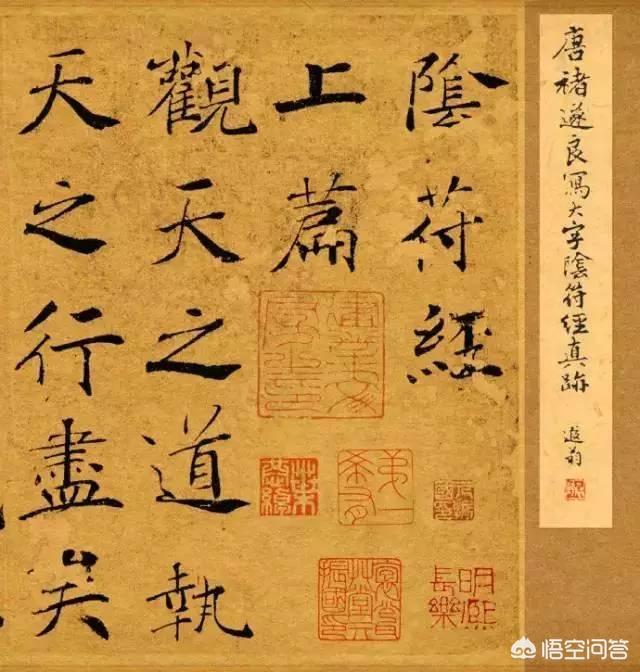 唐褚遂良寫大字陰符經真跡
遐翁
陰符經
上篇
觀天之道執
天之行盡矣
建業文房之印
悟空问答